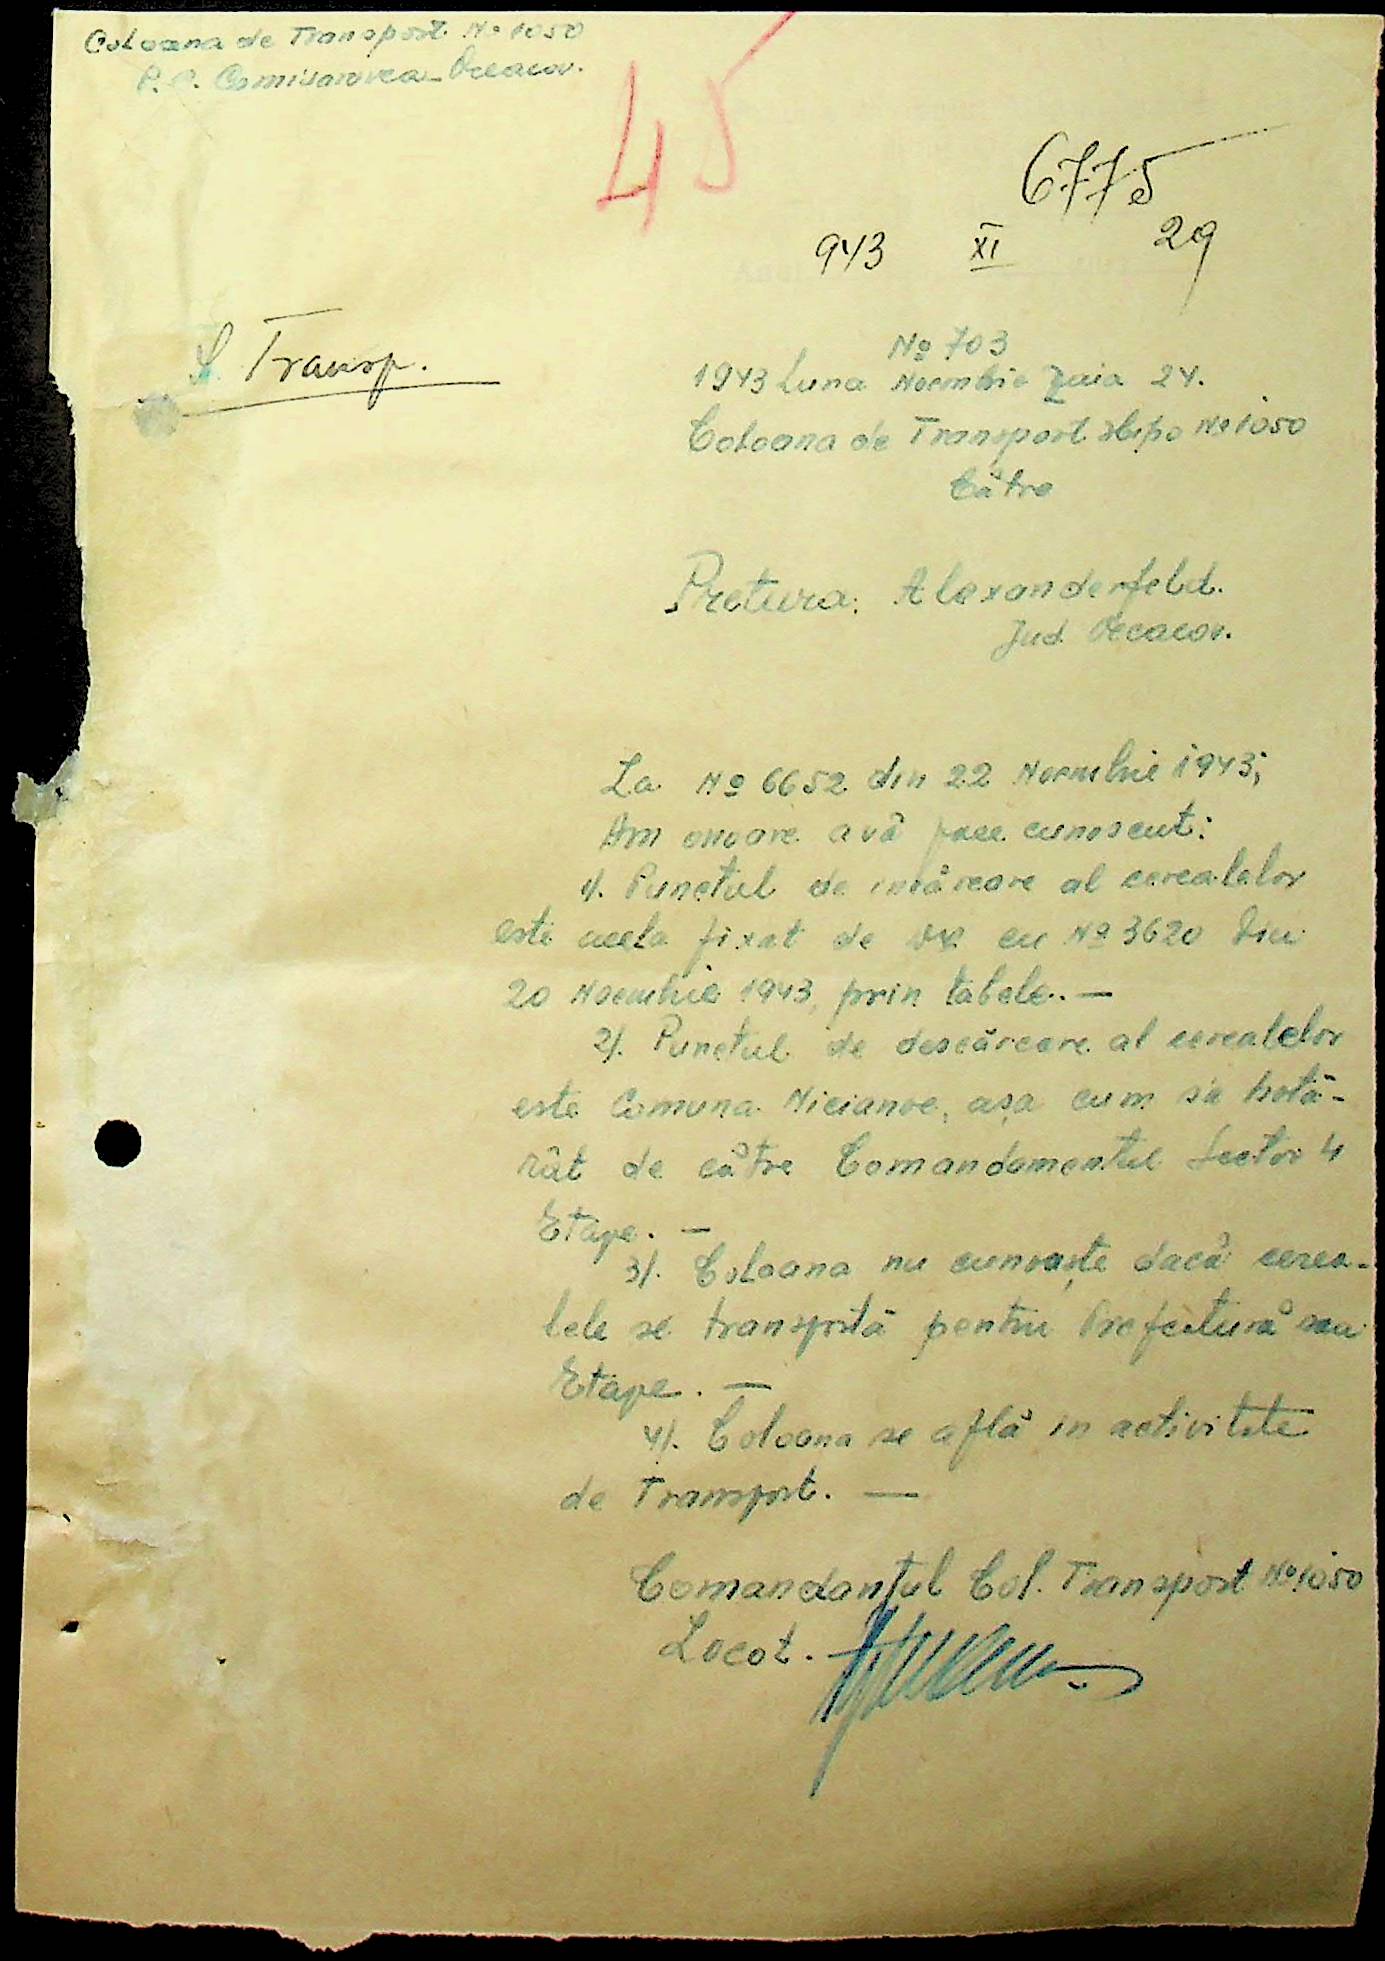 Coloana de Transport No 1050
P. C. Comisarovca - Oceacov.
45
6775
943 XI 29
S. Transp.
No 703
1943 Luna Noembrie Ziua 24.
Coloana de Transport Hipo No 1050
Către
Pretura: Alexanderfeld.
Jud. Oceacov.
La No 6652 din 22 Noembrie 1943;
Am onoare a vă face cunoscut:
1). Punctul de incărcare al cerealelor
este acela fixat de Dv. cu No 3620 Din
20 Noembrie 1943, prin tabele. —
2). Punctul de descărcare al cerealelor
este Comuna, așa cum s'a hotă-
rât de către Comandamentul Sector 4
Etape. —
3). Coloana nu cunoaște dacă cerea-
lele se transportă pentru Prefectură sau
Etape. —
4). Coloana se află in activitate
de Transport. —
Comandantul Col. Transport No 1050
Locot.